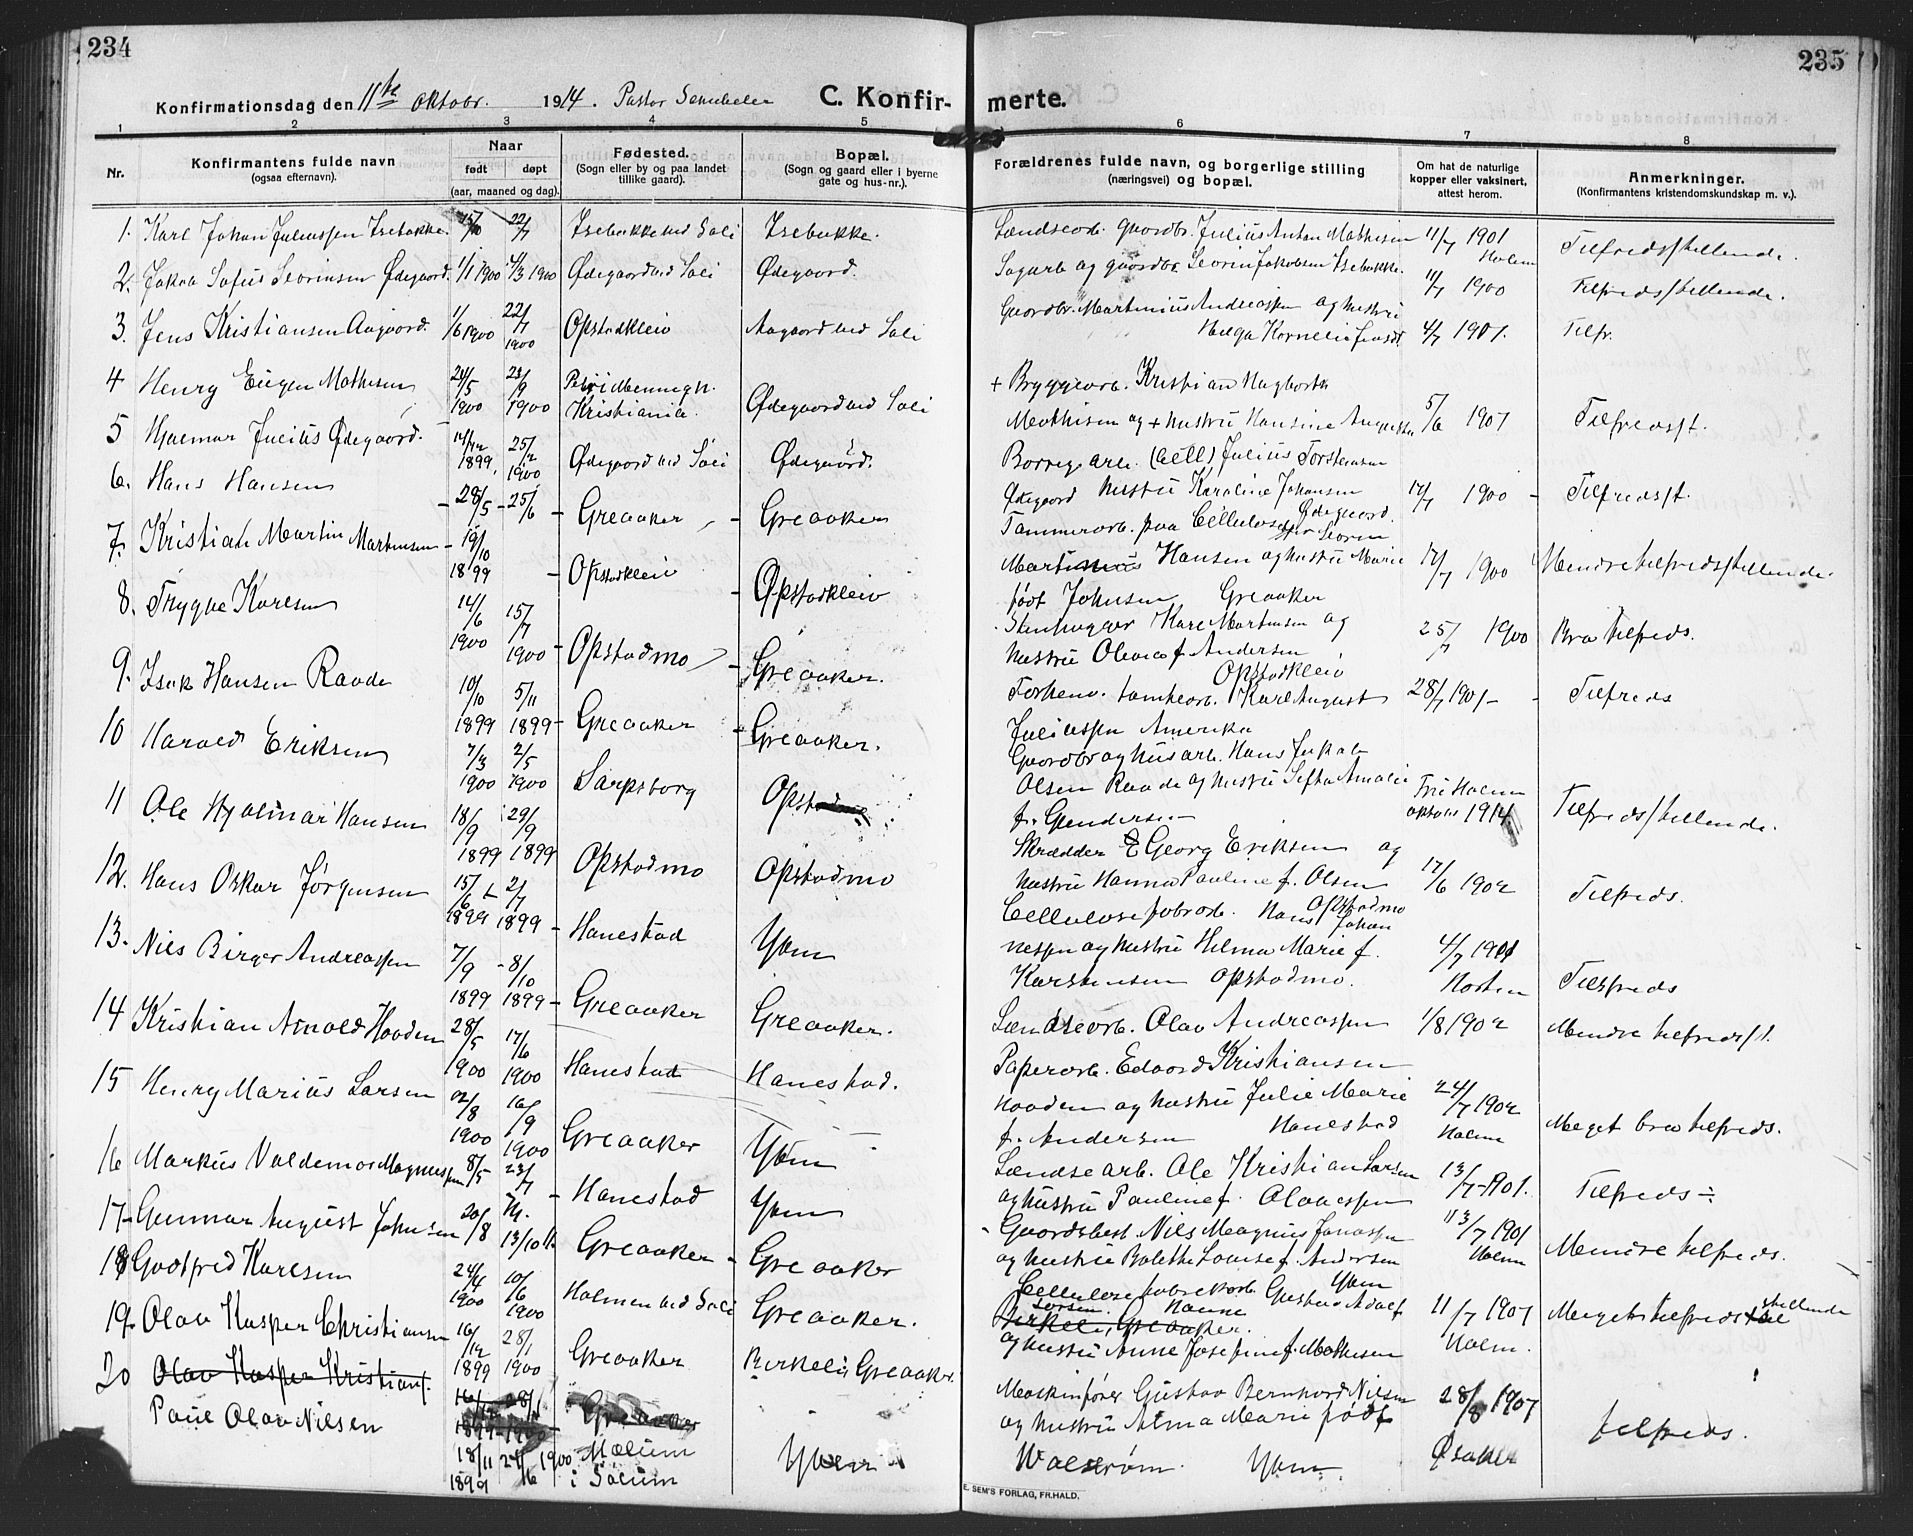 234
Konfirmationsdag den 11te oktobr. 1914. Pastor
C. Konfir-
1 2 3 4 5
Nr.
Konfirmantens fulde navn
(ogsaa efternavn).
Naar
født døpt
(aar, maaned og dag).
Fødested.
(Sogn eller by og paa landet
tillike gaard).
Bopæl.
(Sogn og gaard eller i byerne
gate og hus-nr.).
1. Karl Johan Juliussen Isebakke. 22/7 Isebakke ved Soli Isebakke.
2. Jakob Sofus Sørinsen Ødegaard. 1/1 1900 4/3 1900 Ødegaard ved Soli Ødegaard.
3. Jens Kristiansen Aagaard. 1/6 1900 22/7 1900 Opstadkleiv Aagaard ved Soli
4 Henry Eugen Mathisen 24/5 1900 23/9 1900 Kristiania. Ødegaard ved Soli
5 Hjalmar Julius Ødegaard. 14/12 1899. 25/2 1900 Ødegaard ved Soli Ødegaard.
6. Hans Hansen 28/5 - 25/6 - Greaaker - Greaaker
7. Kristian Martin Martinsen - 19/10 1899 - Opstadkleiv Opstadkleiv
8. Trygve Karlsen 14/6 1900 15/7 1900 - Opstadmo - Greaaker.
9. Isak Hansen Raade 10/10 1899 5/11 1899 - Greaaker - Greaaker.
10 Harald Eriksen 7/3 1900 2/5 1900 Sarpsborg
11 Ole Hjalmar Hansen 18/9 1899 29/9 1899 Opstadmo Opstadmo
12. Hans Oskar Jørgensen 15/6 1899 2/7 1899 - Hanestad Yven
13. Nils Birger Andreassen 7/9 1899 - 8/10 1899 - Greaaker Greaaker.
14 Kristian Arnold Hauden 28/5 1900 17/6 1900 Hanestad Hanestad.
15 Henry Marius Larsen 12/8 1900 16/9 1900 Greaaker Yven
16 Markus Valdemar Magnussen 8/5 23/7 - Hanestad Yven
17- Gunnar August Johnsen 20/8 13/10 Greaaker - Greaaker
18 Godtfred Karlsen 24/4 1900 10/6 1900 Holmen ved Soli Greaaker.
19. Olav Kasper Christiansen 16/12 1899 28/1 1900 Greaaker Birkeli, Greaaker.
20 Olav Kasper Kristians. 16/12 1899 28/1 1900 - Greaaker
Paul Olav Nilsen 18/11 1899 24/6 1900 Mælum i Solum Yven
235
merte.
6 7 8
Forældrenes fulde navn, og borgerlige stilling
(næringsvei) og bopæl.
Om hat de naturlige
kopper eller vaksinert,
attest herom.
Anmerkninger.
(Konfirmantens kristendomskundskap m. v.).
Lændsearb. Gaardbr. Julius Anton Mathisen 11/7 1901 Holm Tilfredsstillende.
Sagarb og gaardbr Sørin Jakobsen Isebakke. 11/7 1900 Tilfredsstillende.
Gaardbr. Martinius Andreassen og hustru
Helga Kornelie Jensdt 4/7 1901. Tilfr.
+ Bryggearb. Kristian Hagbarth
Mathisen og + hustru Hansine Augusta 5/6 1907 Tilfredsst.
Borregarb. (Cell) Julius Torstensen
Ødegaard hustru Karoline Johansen Ødegaard. 17/7 1900 - Tilfredsst.
Tømmerarb. paa Cellulosen
Hansen og hustru Marie 17/7 1900 Mindre tilfredsstillende.
født Johnsen Greaaker
Stenhugger Karl Martinsen og 25/7 1900 Bra tilfreds.
hustru Olava f. Andersen
Opstadkleiv
Forhenv. tomtearb. Karl August 28/7 1901 - Tilfreds
Juliussen Amerika
Gaardbr og husarb. Hans Jakob
Olsen Raade og hustru Sefta Amalie Fru Holm
f. Gundersen oktober 1914 Tilfredsstillende.
Skrædder Georg Eriksen og
hustru Hanna Pauline f. Olsen 17/6 1902 Tilfreds.
Opstadmo
Cellulosefabarb. Hans Johan
nessen og hustru Hilma Marie f. 4/7 1901
Karstensen Opstadmo. Horten Tilfreds
Lændsearb. Olav Andreassen 1/8 1902 Mindre tilfredsst.
Papirarb. Edvard Kristiansen
Hauden og hustru Julie Marie 24/7 1902
f. Andersen Hanestad Holm Meget bra tilfreds.
Lændsearb. Ole Kristian Larsen 13/7 - 1901.
og hustru Pauline f. Olavesen Tilfreds
Gaardsbest. Nils Magnus Jonassen 13/7 1901
og hustru Bolette Lovise f. Andersen Holm Mindre tilfreds.
Yven
Cellulosefabrikarb. Gustav Adolf
Larsen. 11/7 1907 Meget tilfredsstillende
Birkeli, Greaaker.
og hustru Anne Josefine f. Mathisen Holm.
Maskinfører Gustav Bernhard Nilsen 28/8 1907
og hustru Alma Marie født Tilfreds.
Walstrøm. Yven
E. SEM'S FORLAG, FR.HALD.